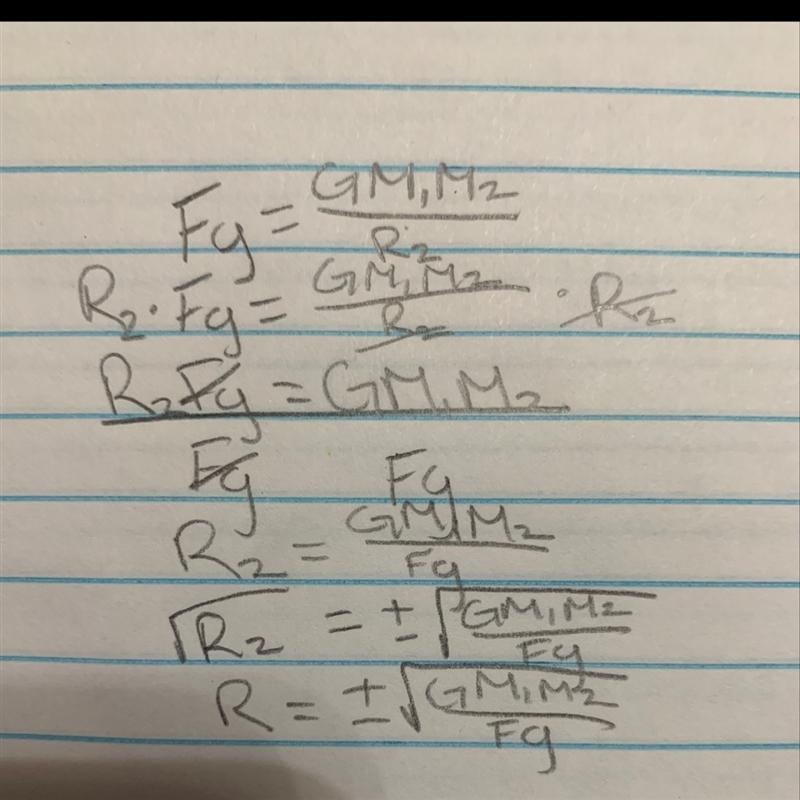 Fg = GM₁M₂ / R₂
R₂ · Fg = GM₁M₂ / R₂ · R₂
R₂Fg = GM₁M₂
Fg Fg
R₂ = GM₁M₂ / Fg
√R₂ = ± √GM₁M₂ / Fg
R = ± √GM₁M₂ / Fg